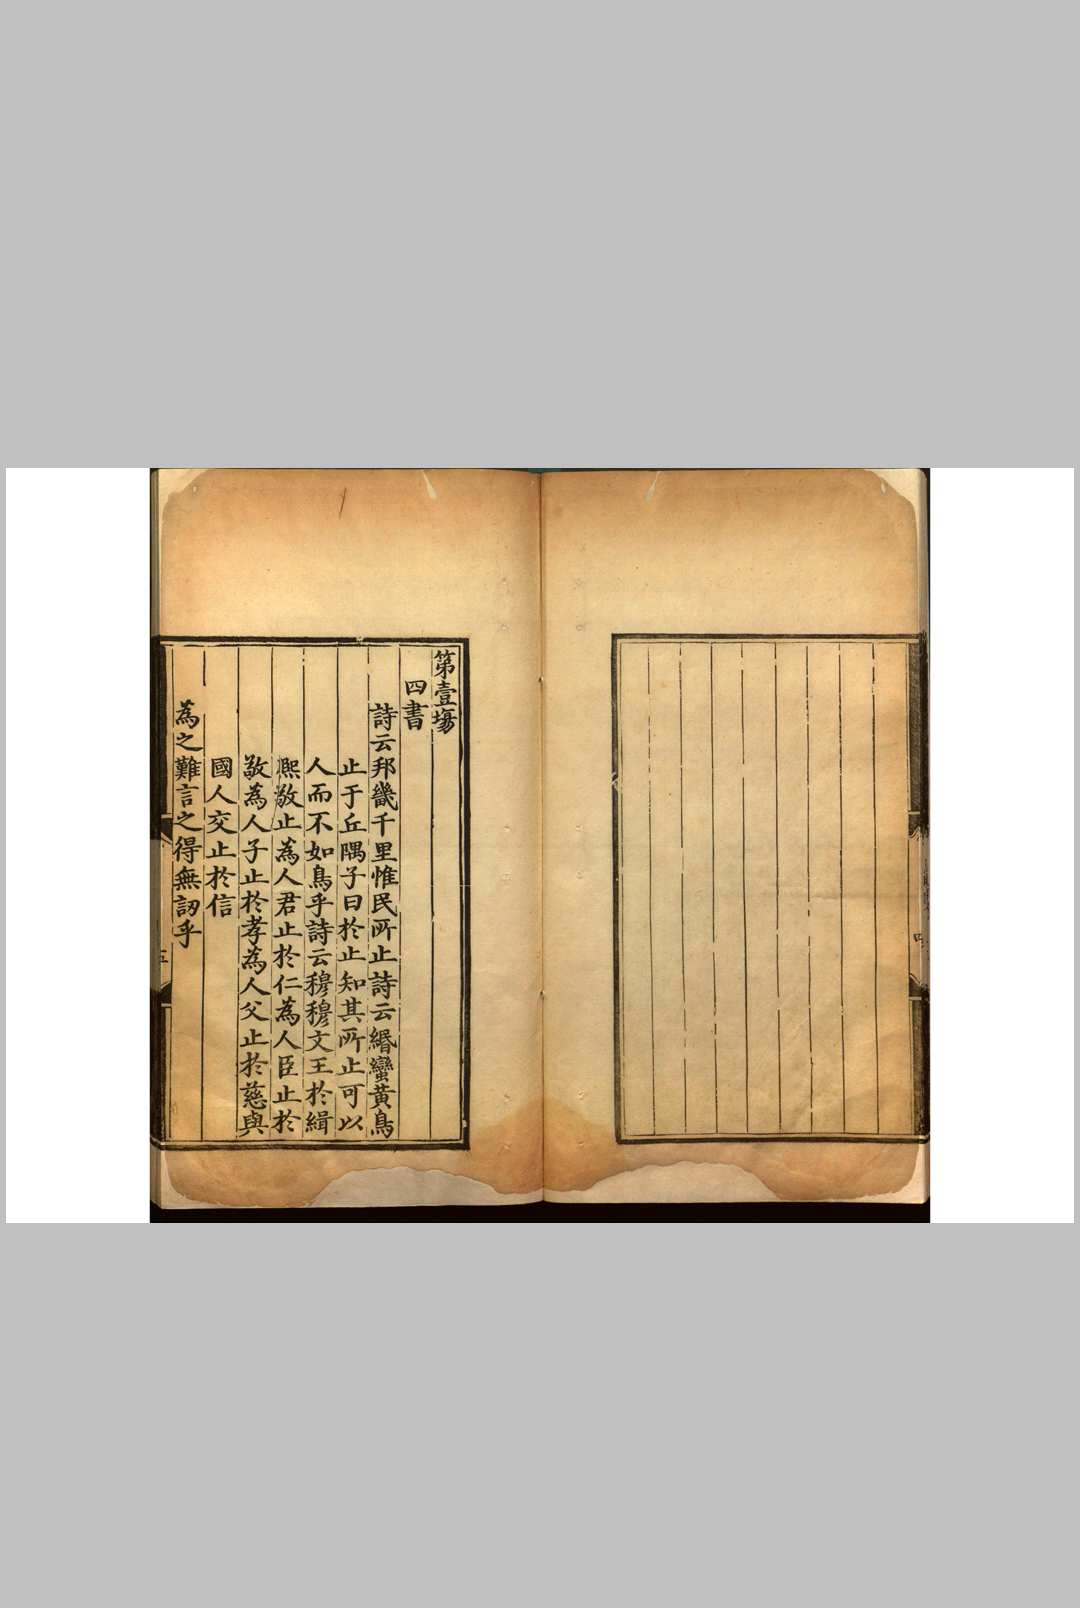 第壹塲
四書
詩云邦畿千里惟民所止詩云緡蠻黃鳥
止于丘隅子曰於止知其所止可以
人而不如鳥乎詩云穆穆文王於緝
熙敬止為人君止於仁為人臣止於
敬為人子止於孝為人父止於慈與
國人交止於信
為之難言之得無訒乎
五